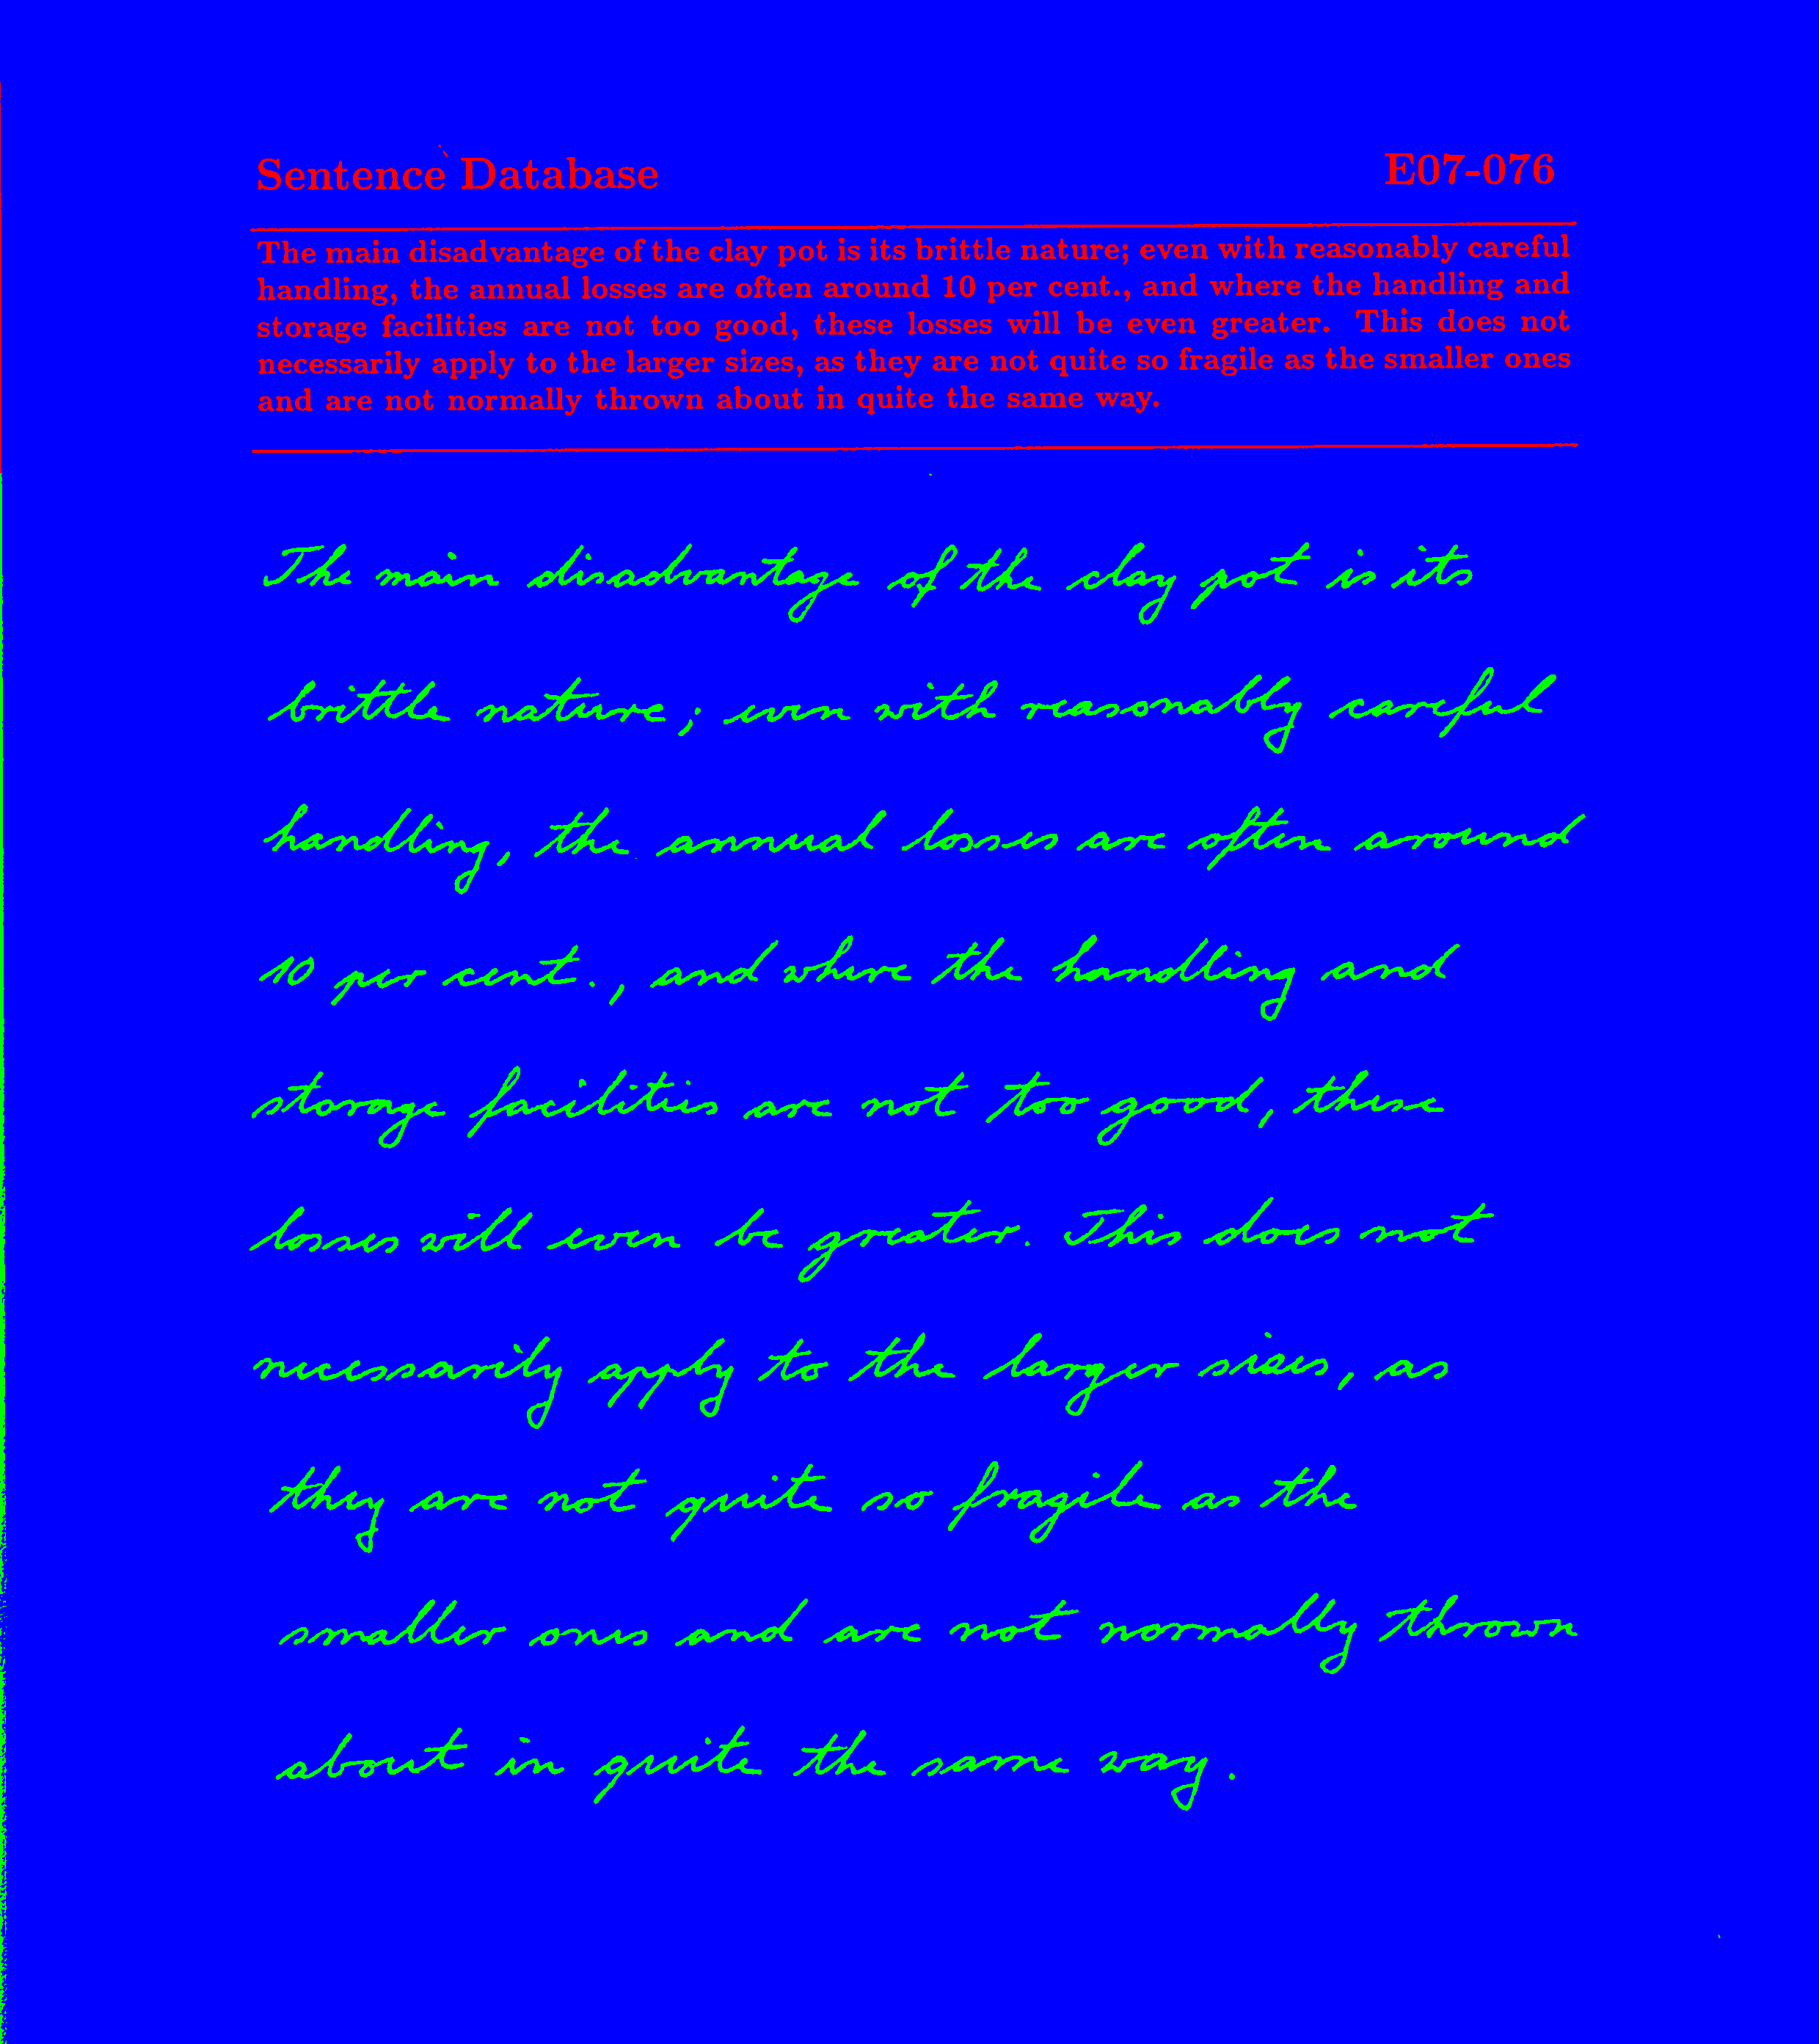 Sentence Database E07-076
The main disadvantage of the clay pot is its brittle nature; even with reasonably careful
handling, the annual losses are often around 10 per cent., and where the handling and
storage facilities are not too good, these losses will be even greater. This does not
necessarily apply to the larger sizes, as they are not quite so fragile as the smaller ones
and are not normally thrown about in quite the same way.
The main disadvantage of the clay pot is its
brittle nature; even with reasonably careful
handling, the annual losses are often around
10 per cent., and where the handling and
storage facilities are not too good, these
losses will even be greater. This does not
necessarily apply to the larger sizes, as
they are not quite so fragile as the
smaller ones and are not normally thrown
about in quite the same way.